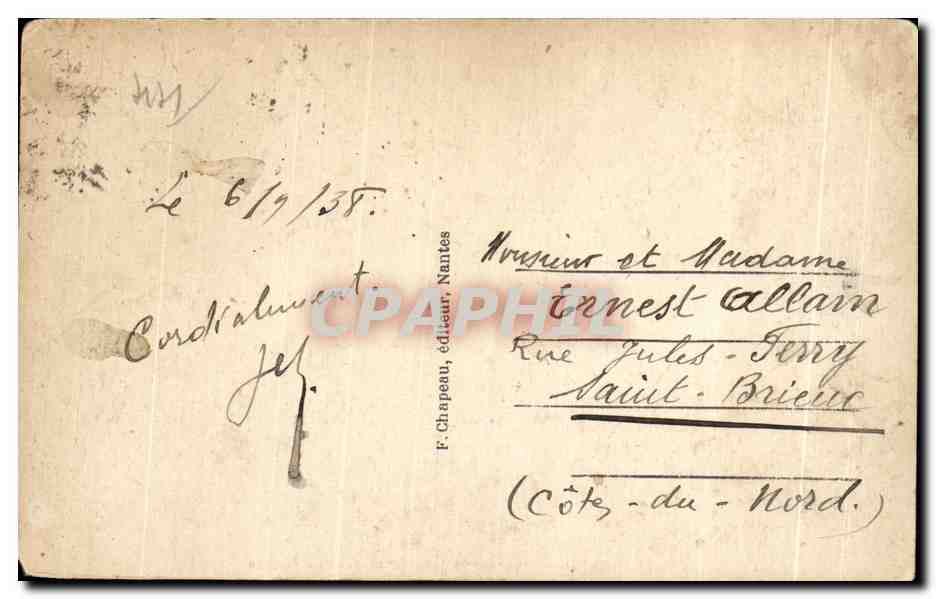 Le 6/9/38.
Cordialement.
F. Chapeau, éditeur, Nantes
CPAPHIL
Monsieur et Madame
Ernest Allain
Rue Jules-Ferry
Saint-Brieuc
(Côtes-du-Nord.)